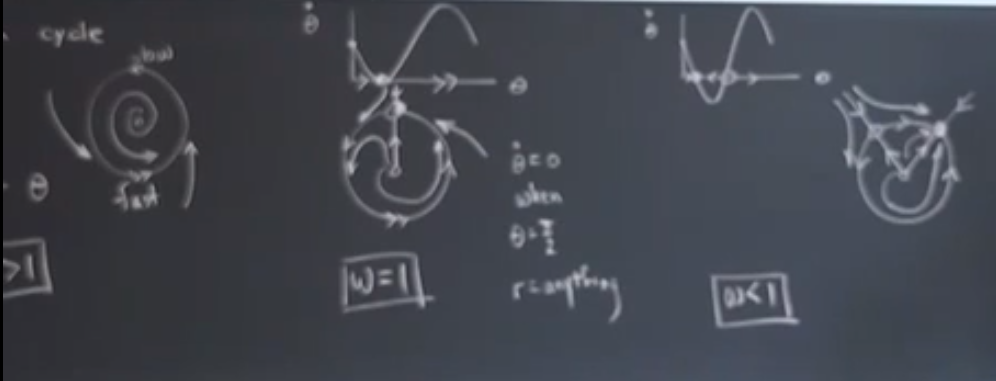 cycle
slow
fast
θ
>1
θ̇
θ
ω=1
θ̇=0
when
θ=π/2
r=anything
θ̇
θ
ω<1